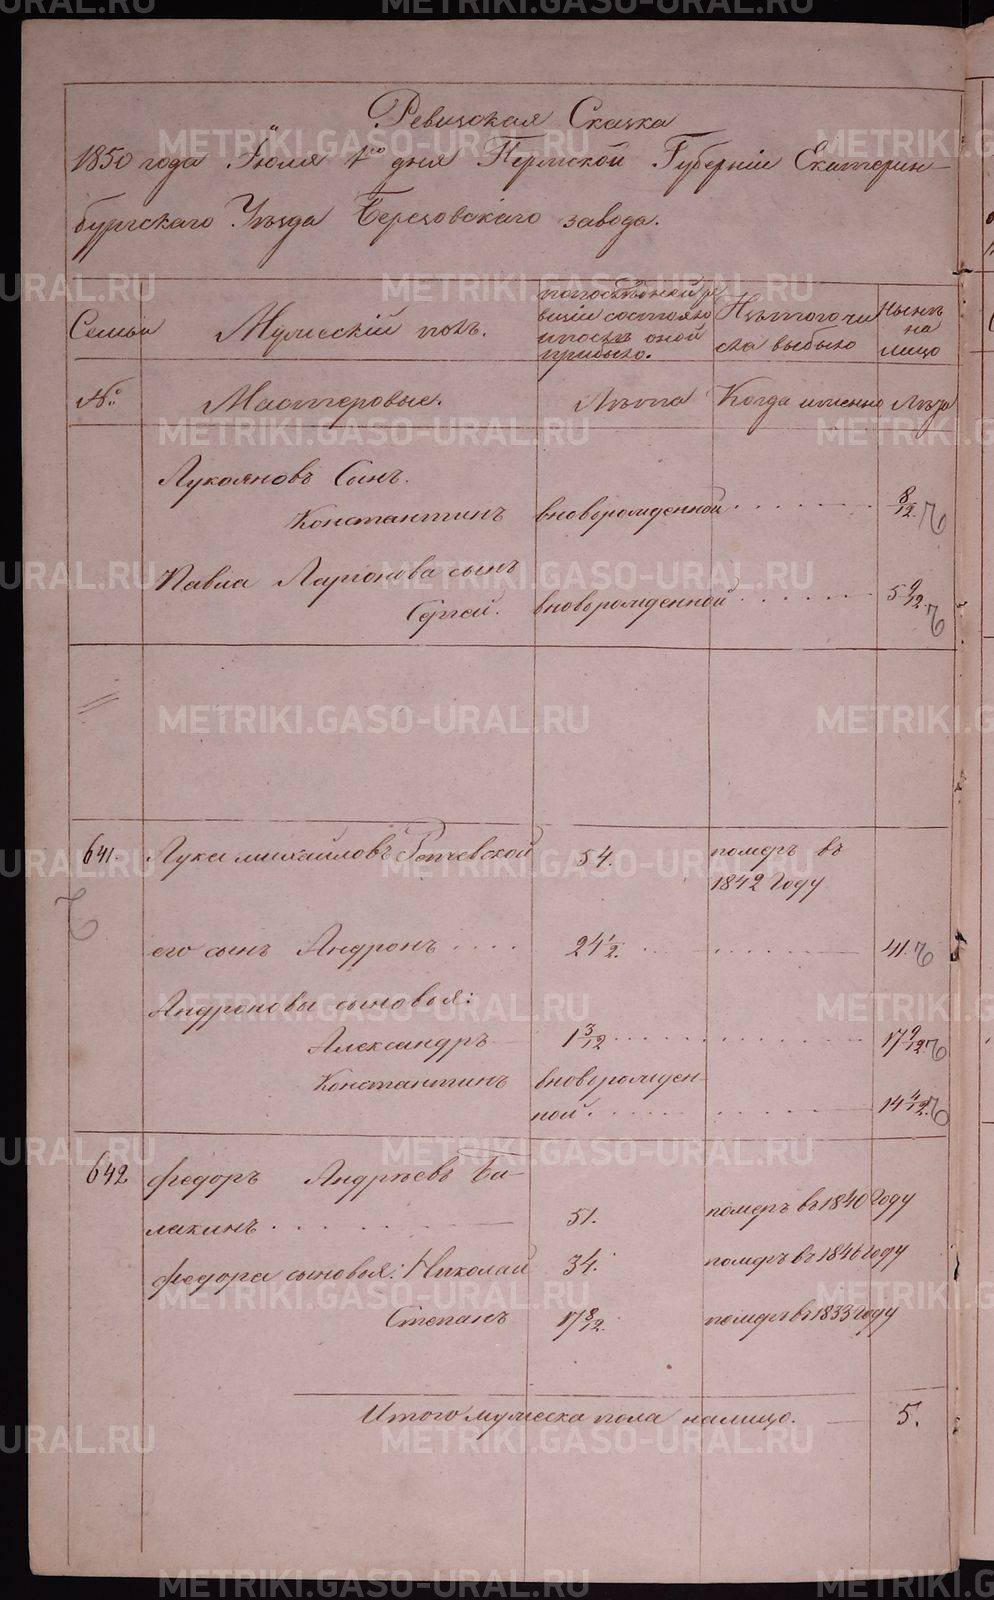 Ревизская Сказка
1850 года Июля 1го дня Пермской Губерніи Екатерин
бургскаго Уѣзда Березовскаго завода.
Семьи
Мужескій полъ.
попослѣдней ре
визіи состояло
ипослѣ оной
прибыло.
Изътогочи
сла выбыло
Нынѣ
на
лицо
№
Мастеровые.
Лѣта
Когда именно
Лѣта
Лукояновъ Сынъ.
Константинъ вноворожденной 8/12
Павла Ларіонова сынъ
Сергей. вноворожденной 5 9/12.
641. Лука михайловъ 54. померъ въ
1842 году
его сынъ Андронъ 24 1/2. 41.
Андроновы сыновья:
Александръ 1 3/12 17 9/12
Константинъ вноворожден-
ной. 14 4/12.
642 Федоръ Андреевъ Ба-
лакинъ 51. померъ въ 1840 году
Федора сыновья: Николай 34. померъ въ 1846 году
Степанъ 17 8/12. померъ въ 1833 году
Итого мужеска пола налицо. 5.
METRIKI.GASO-URAL.RU